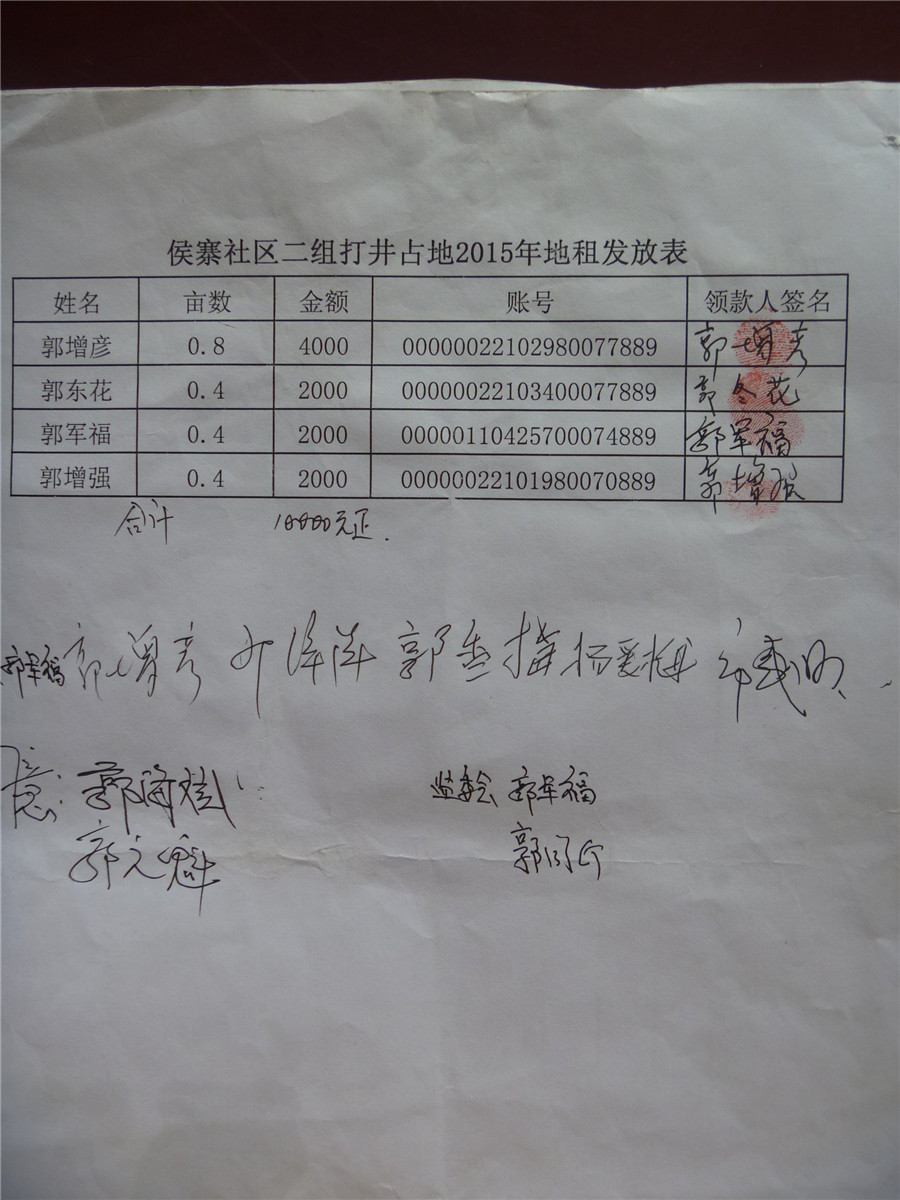 侯寨社区二组打井占地2015年地租发放表
姓名 亩数 金额 账号 领款人签名
郭增彦 0.8 4000 00000022102980077889 郭增彦
郭东花 0.4 2000 00000022103400077889 郭冬花
郭军福 0.4 2000 00000110425700074889 郭军福
郭增强 0.4 2000 00000022101980070889 郭增强
合计 10000元正.
郭军福 郭增彦
意: 郭海斌 监委会 郭军福
郭元魁 郭